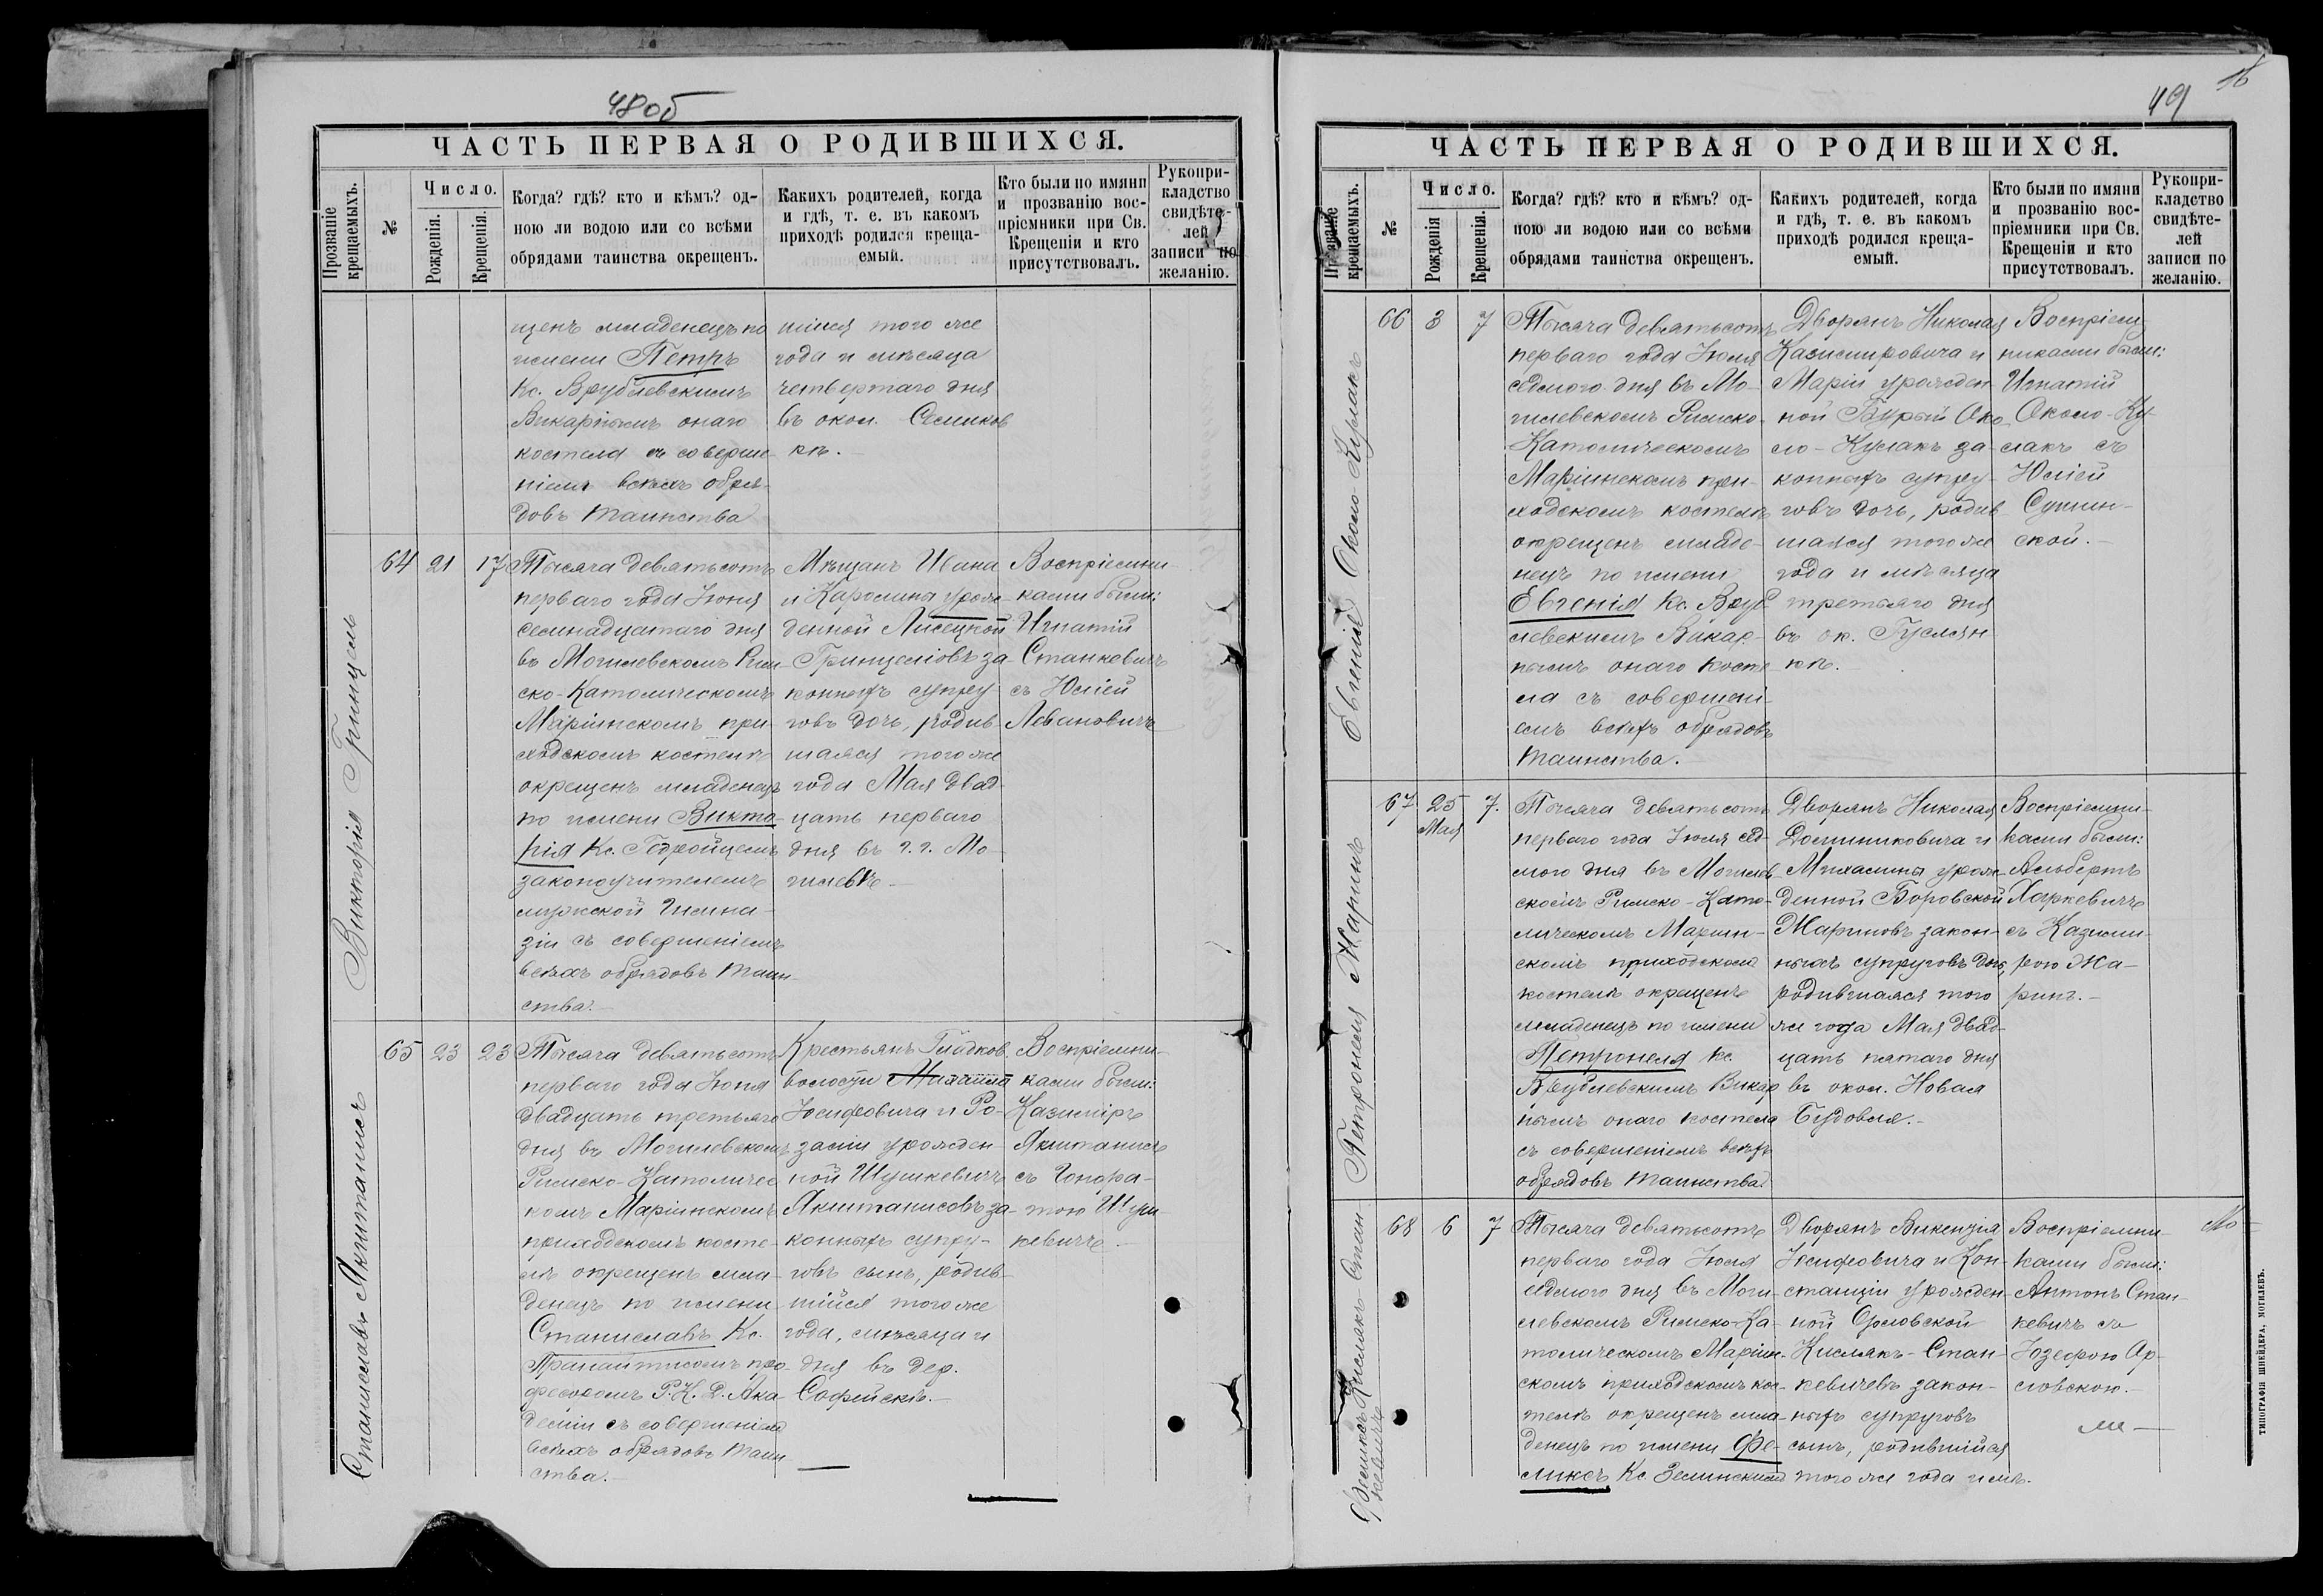 48об
ЧАСТЬ ПЕРВАЯ О РОДИВШИХСЯ.
Прозваніе крещаемыхъ.
№
Число.
Рожденія.
Крещенія.
Когда? гдѣ? кто и кѣмъ? од-
ною ли водою или со всѣми
обрядами таинства окрещенъ.
Какихъ родителей, когда
и гдѣ, т. е. въ какомъ
приходѣ родился креща-
емый.
Кто были по имяни
и прозванію вос-
пріемники при Св.
Крещеніи и кто
присутствовалъ.
Рукопри-
кладство
свидѣте-
лей
записи по
желанію.
щенъ младенецъ по
имени Петръ
Кс. Врублевскимъ
Викарнымъ онаго
костела съ соверше-
ніемъ всѣхъ обря-
довъ таинства
шійся того же
года и мѣсяца
четвертаго дня
въ окол. Семиков
кѣ.
Викторія Гринцель
64 21 17
Тысяча девятьсотъ
перваго года Іюня
семнадцатаго дня
въ Могилевскомъ Рим-
ско-Католическомъ
Маріинскомъ при-
ходскомъ костелѣ
окрещенъ младенецъ
по имени Викто-
рія Кс. Гедройцемъ
законоучителемъ
мужской Гимна-
зіи съ совершеніемъ
всѣхъ обрядовъ таин-
ства.-
Мѣщанъ Ивана
и Каролины урож-
денной Лисецкой
Гринцеліовъ за-
конныхъ супру-
говъ дочь, родив-
шаяся того же
года Мая двад-
цать перваго
дня въ г. г. Мо-
гилевѣ-
Воспріемни-
ками были:
Игнатій
Станкевичъ
съ Юліей
Левановичъ
Станиславъ Якштанисъ
65 23 23
Тысяча девятьсотъ
перваго года Іюня
двадцать третьяго
дня въ Могилевскомъ
Римско-Католичес
комъ Маріинскомъ
приходскомъ косте-
лѣ окрещенъ мла-
денецъ по имени
Станиславъ Кс.
Пранайтисомъ про-
фесоромъ Р. К. Д. Ака-
деміи съ совершеніемъ
всѣхъ обрядовъ таин
ства.-
Крестьянъ Гладков.
волости Михаила
Іосифовича и Ро-
заліи урожден-
ной Шушкевичъ
Якштанисовъ за-
конныхъ супру-
говъ сынъ, родив-
шійся того же
года, мѣсяца и
дня въ дер.
Софейскѣ.-
Воспріемни-
ками были:
Казиміръ
Якштанисъ
съ Гонора-
тою Шуш-
кевичъ.-
49
16
ЧАСТЬ ПЕРВАЯ О РОДИВШИХСЯ.
Прозваніе крещаемыхъ.
№
Число.
Рожденія
Крещенія.
Когда? гдѣ? кто и кѣмъ? од-
ною ли водою или со всѣми
обрядами таинства окрещенъ.
Какихъ родителей, когда
и гдѣ, т. е. въ какомъ
приходѣ родился креща-
емый.
Кто были по имяни
и прозванію вос-
пріемники при Св.
Крещеніи и кто
присутствовалъ.
Рукопри-
кладство
свидѣте-
лей
записи по
желанію.
Евгенія Около Кулакъ
66 3 7
Тысяча девятьсотъ
перваго года Іюля
седмого дня въ Мо-
гилевскомъ Римско-
Католическомъ
Маріинскомъ при-
ходскомъ костелѣ
окрещенъ младе-
нецъ по имени
Евгенія Кс. Вруб
левскимъ Викар-
нымъ онаго косте
ла съ совершені-
емъ всѣхъ обрядовъ
таинства.
Дворянъ Николая
Казимировича и
Маріи урожден-
ной Бурой Око-
ло-Кулакъ за-
конныхъ супру-
говъ дочь, родив
шаяся того же
года и мѣсяца
третьяго дня
въ ок. Гуслян
кѣ.
Воспріем-
никами были:
Игнатій
Около-Ку-
лакъ съ
Юліей
Сушин-
ской.-
Петронеля Жаринъ
67 25 7.
Мая
Тысяча девятьсотъ
перваго года Іюля сед-
мого дня въ Могилев-
скомъ Римско-Като-
лическомъ Маріин-
скомъ приходскомъ
костелѣ окрещенъ
младенецъ по имени
Петронеля Кс.
Врублевскимъ Викар
нымъ онаго костела
съ совершеніемъ всѣхъ
обрядовъ таинства.
Дворянъ Николая
Доминиковича и
Михалины урож-
денной Боровской
Жариновъ закон-
ныхъ супруговъ дочь,
родившаяся того
же года Мая двад-
цать пятаго дня
въ окол. Новая
Будовля.-
Воспріемни-
ками были:
Альбертъ
Харкевичъ
съ Казими-
рою Жа-
ринъ.-
Феликсъ Кислякъ-Стан
кевичъ
68 6 7
Тысяча девятьсотъ
перваго года Іюля
седмого дня въ Моги-
левскомъ Римско-Ка-
толическомъ Маріин-
скомъ приходскомъ кос-
телѣ окрещенъ мла-
денецъ по имени Фе-
ликсъ Кс. Зелинскимъ
Дворянъ Викентія
Іосифовича и Кон-
станціи урожден-
ной Орловской
Кислякъ-Стан-
кевичевъ закон-
ныхъ супруговъ
сынъ, родившійся
того же года и мѣ.
Воспріемни-
ками были:
Антонъ Стан-
кевичъ съ
Іозефою Ор-
ловскою.-
ТИПОГРАФІЯ ШНЕЙДЕРА, МОГИЛЕВЪ.